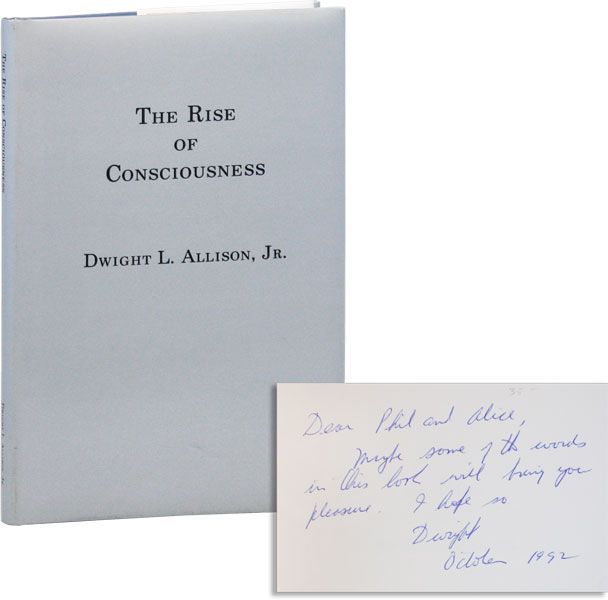 THE RISE OF CONSCIOUSNESS
DWIGHT L. ALLISON, JR.
THE RISE
OF
CONSCIOUSNESS
DWIGHT L. ALLISON, JR.
35 -
Dear Phil and Alice,
Maybe some of the words
in this book will bring you
pleasure. I hope so
Dwight
October 1992